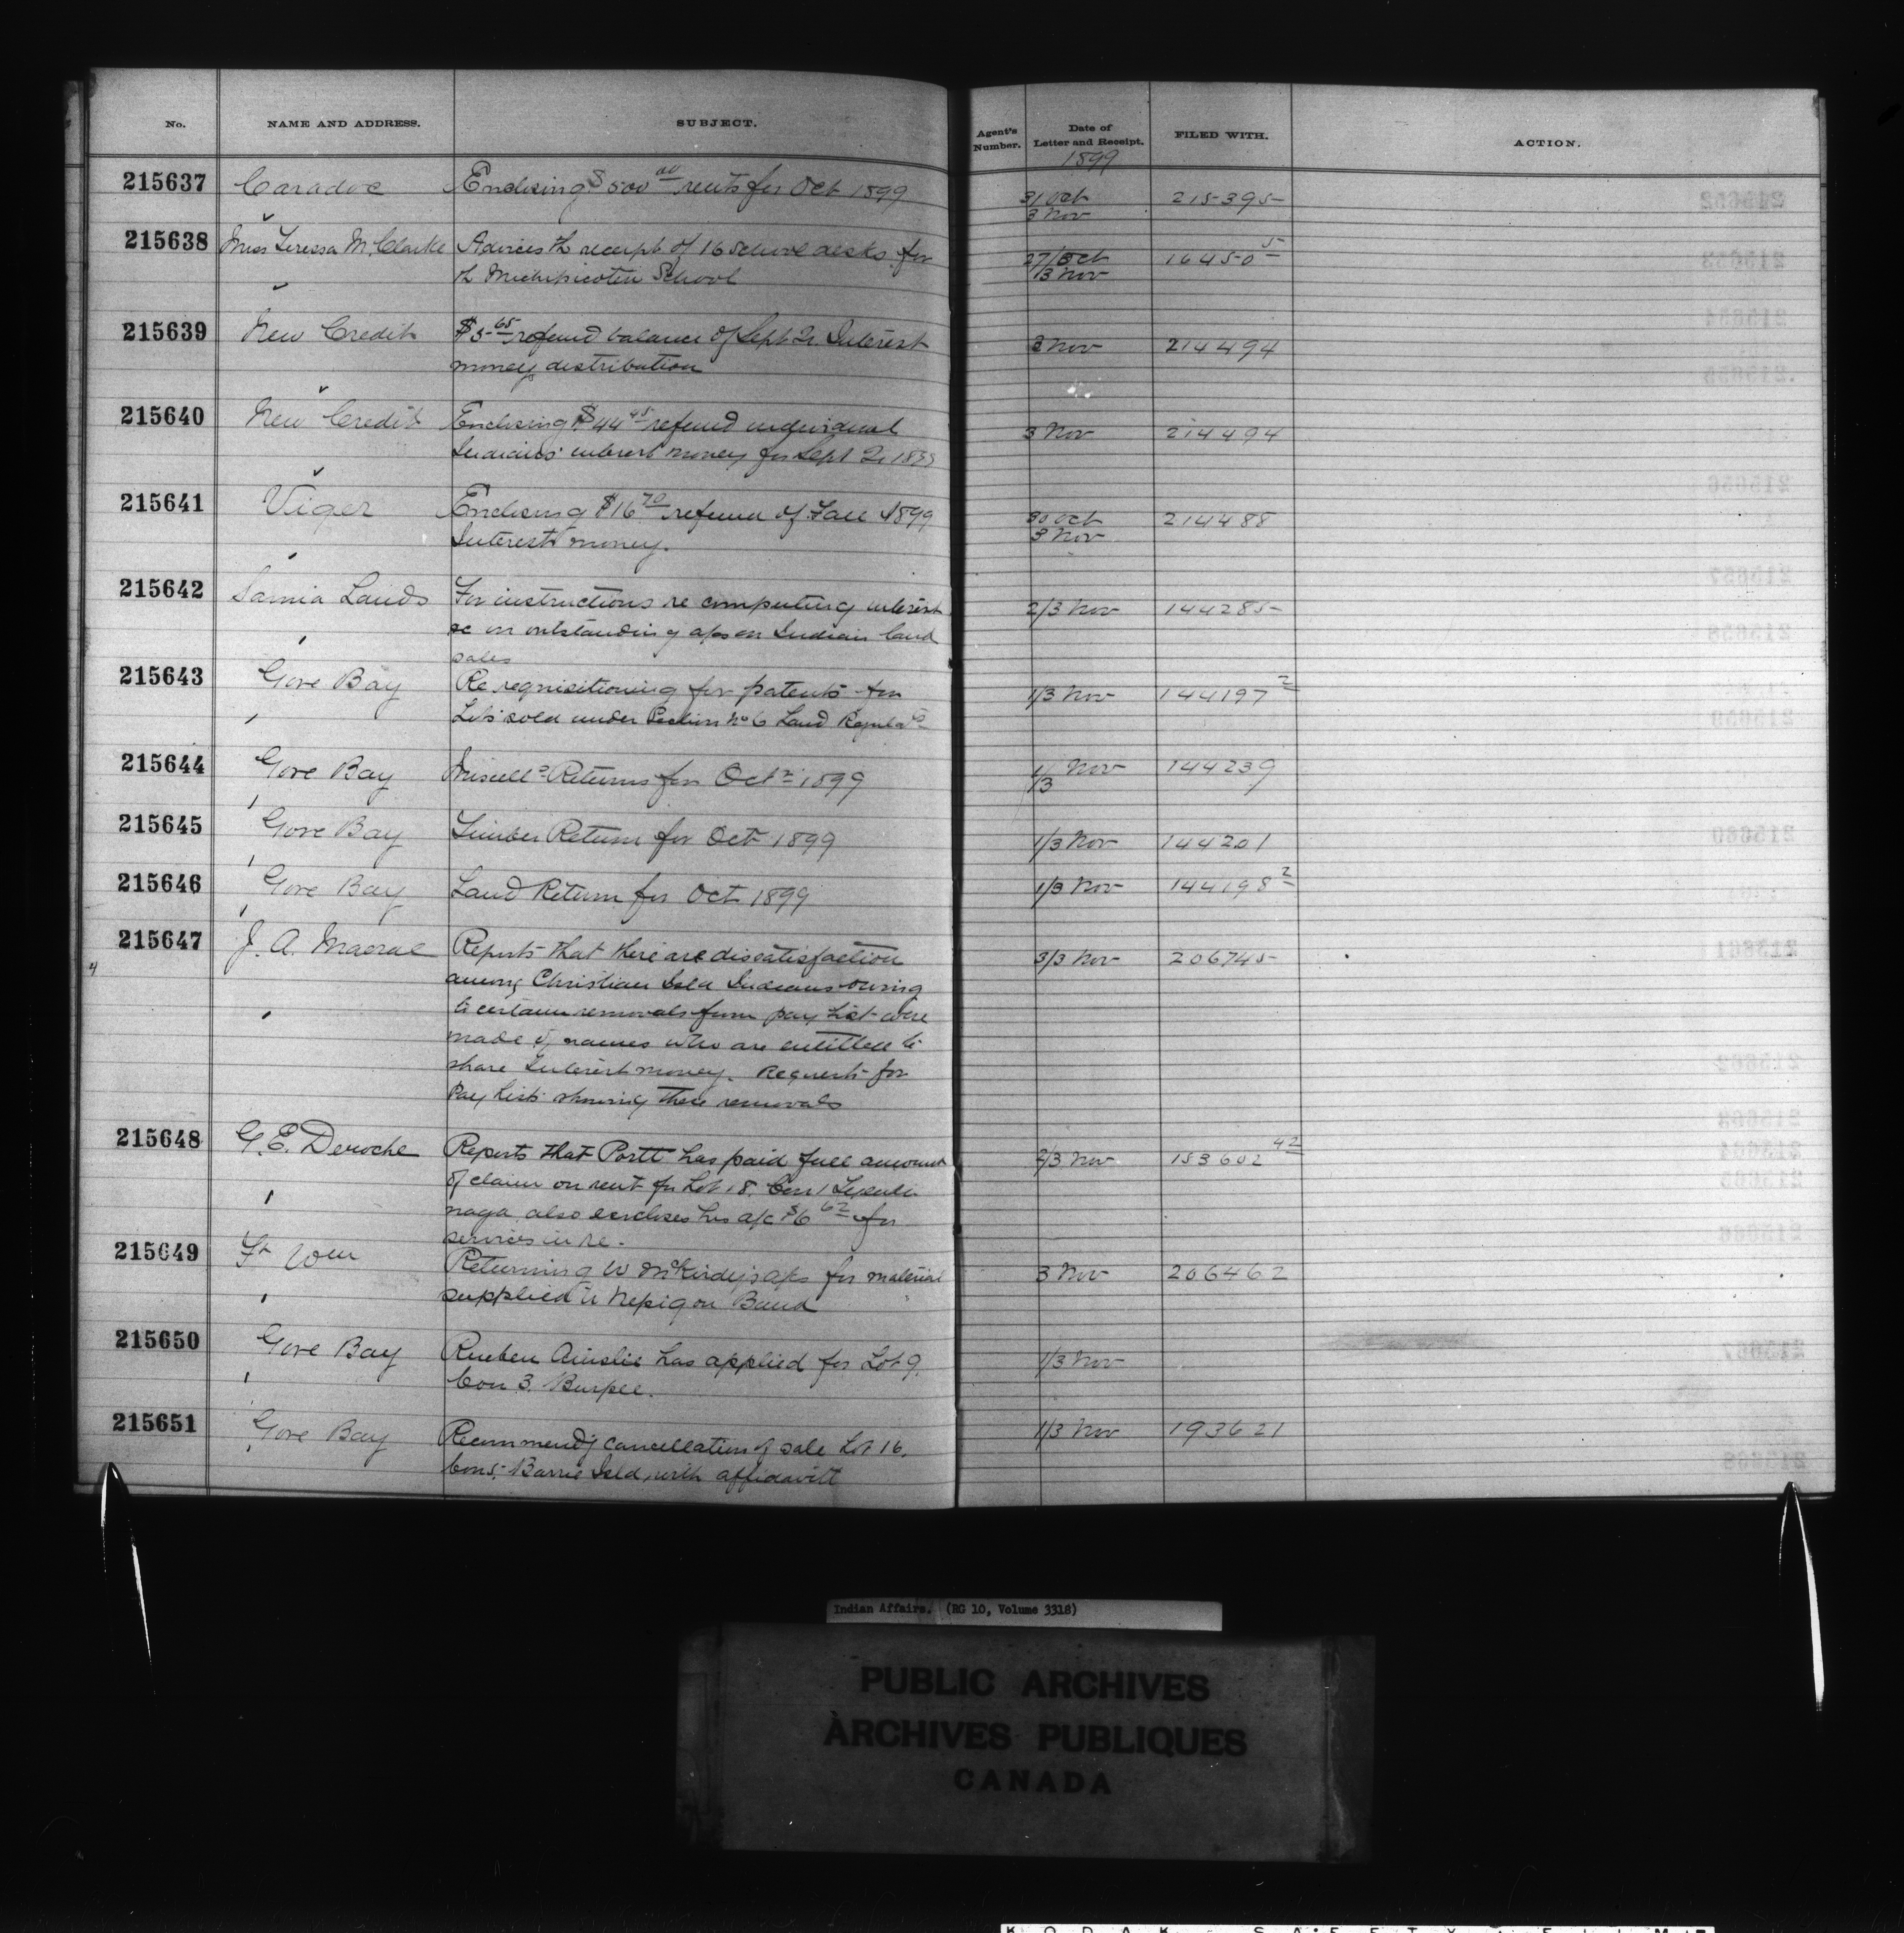 No. NAME AND ADDRESS. SUBJECT. Agent's Number. Date of Letter and Receipt. FILED WITH. ACTION.
1899
215637 Caradoc Enclosing $500 00 rents for Oct 1899 31 Oct 215395
3 Nov
215638 Miss Teressa M. Clarke Advices th receipt of 16 school desks for 27/Oct 16450 5
th Michipicoten School 13 Nov
215639 New Credit $5 65 refund balance of Sept Qr. Interest 3 Nov 214494
money distribution
215640 New Credit Enclosing $44 45 refund individual 3 Nov 214494
Indians' interest money for Sept Qr 1899
215641 Viger Enclosing $16 70 refund of Fall 1899 30 Oct 214488
Interest money. 3 Nov
215642 Sarnia Lands For instructions re computing interest 2/3 Nov 144285
&c on outstanding a/cs on Indian land
sales
215643 Gore Bay Re requisitioning for patents for 1/3 Nov 144197 2
Lots sold under Section No 6 Land Regulatns
215644 Gore Bay Miscells Returns for Octr 1899 1/3 Nov 144239
215645 Gore Bay Timber Return for Oct 1899 1/3 Nov 144201
215646 Gore Bay Land Return for Oct 1899 1/3 Nov 144198 2
215647 J. A. Macrae Reports that there are dissatisfaction 3/3 Nov 206745
4 among Christian Isld Indians owing
to certain removals from pay list were
made of names who are entitled to
share Interest money. Requests for
Pay lists showing these removals
215648 G. E. Deroche Reports that Portt has paid full amount 2/3 Nov 153602 42
of claim on rent for Lot 18. Con 1 Tyendi
naga also encloses his a/c $6 62 for
services in re.
215649 Ft Wm Returning W McKirdy's a/cs for material 3 Nov 206462
supplied to Nepigon Band
215650 Gore Bay Rueben Ainslie has applied for Lot 9. 1/3 Nov
Con 3. Burpee.
215651 Gore Bay Recommendg cancellation of sale Lot 16. 1/3 Nov 193621
Con 5. Barrie Isld, with affidavitt
Indian Affairs. (RG 10, Volume 3318)
PUBLIC ARCHIVES
ARCHIVES PUBLIQUES
CANADA
KODAK SAFETY FILM